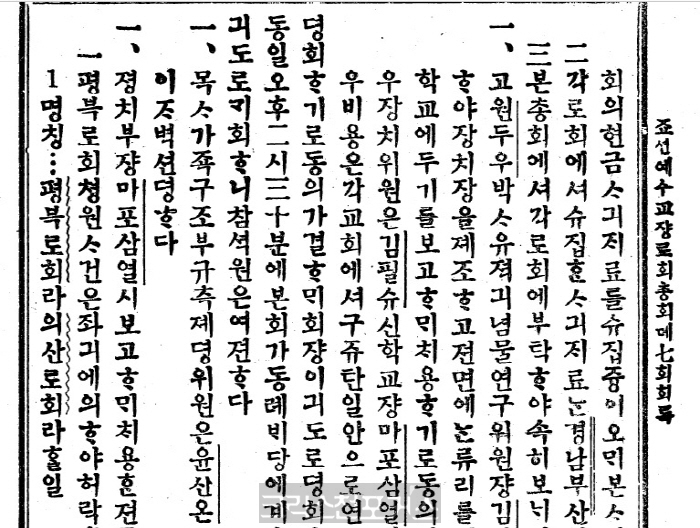 죠선예수교쟝로회총회뎨七회회록
회의현금ᄉᆞ긔ᄌᆡ료를슈집즁이오며본ᄉᆞ
二각로회에셔슈집ᄒᆞᆫᄉᆞ긔ᄌᆡ료ᄂᆞᆫ경남부산
三본총회에셔각로회에부탁ᄒᆞ야속히보ᄂᆡ
一、고원두우박ᄉᆞ유젹긔념물연구위원쟝김
ᄒᆞ야쟝치쟝을졔조ᄒᆞ고젼면에ᄂᆞᆫ류리를
학교에두기를보고ᄒᆞ며ᄎᆡ용ᄒᆞ기로동의
우쟝치위원은김필슈신학교쟝마포삼열
우비용은각교회에셔구쥬탄일안으로연
뎡회ᄒᆞ기로동의가결ᄒᆞ며회쟝이긔도로뎡회
동일오후二시三十분에본회가동례ᄇᆡ당에ᄇᆡ
긔도로ᄀᆡ회ᄒᆞ니참셕원은여젼ᄒᆞ다
一、목ᄉᆞ가죡구조부규측졔뎡위원은윤산온
이ᄌᆞ벽션뎡ᄒᆞ다
一、졍치부쟝마포삼열시보고ᄒᆞ며ᄎᆡ용ᄒᆞᆫ젼
一평북로회쳥원ᄉᆞ건은좌긔에의ᄒᆞ야허락
1명칭…평북로회라의산로회라ᄒᆞᆯ일